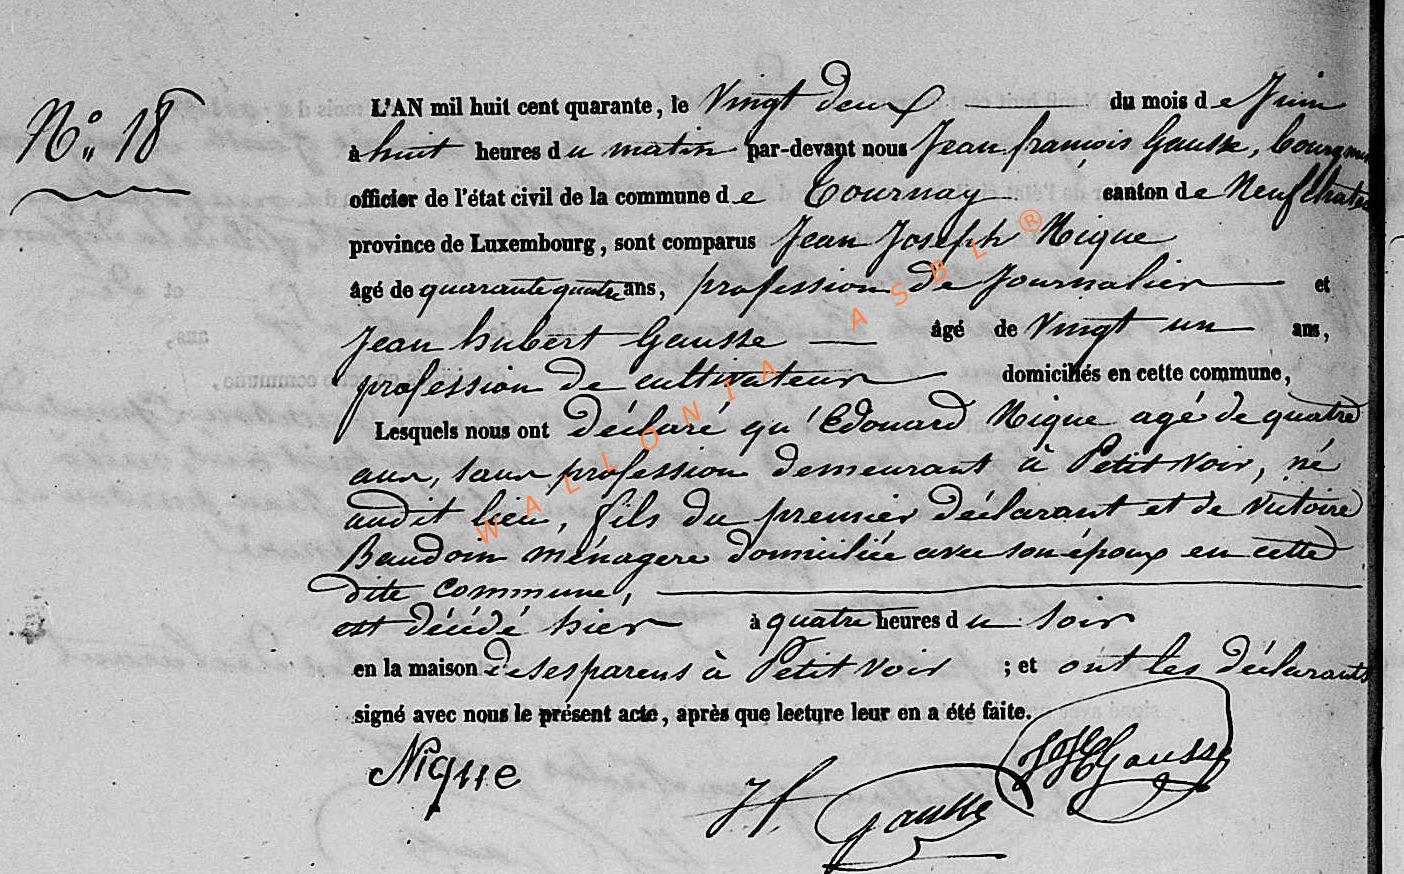 N.° 18
L'AN mil huit cent quarante, le Vingt deux du mois de Juin
à huit heures du matin par-devant nous Jean françois Gausse, bourgm
officier de l'état civil de la commune de Tournay canton de Neufchatea
province de Luxembourg, sont comparus Jean Joseph Nique
âgé de quarante quatre ans, profession de Journalier et
Jean hubert Gausse âgé de Vingt un ans,
profession de cultivateur domiciliés en cette commune,
Lesquels nous ont déclaré qu'Edouard Nique agé de quatre
ans, sans profession demeurant à Petit Voir, né
audit lieu, fils du premier déclarant et de Victoire
Baudoin ménagere domiciliée avec son époux en cette
dite commune,
est décédé hier à quatre heures du soir
en la maison de ses parens à Petit Voir ; et ont les déclarants
signé avec nous le présent acte, après que lecture leur en a été faite.
Nique
H. Gausse
Gausse
WALLONIA ASBL ®